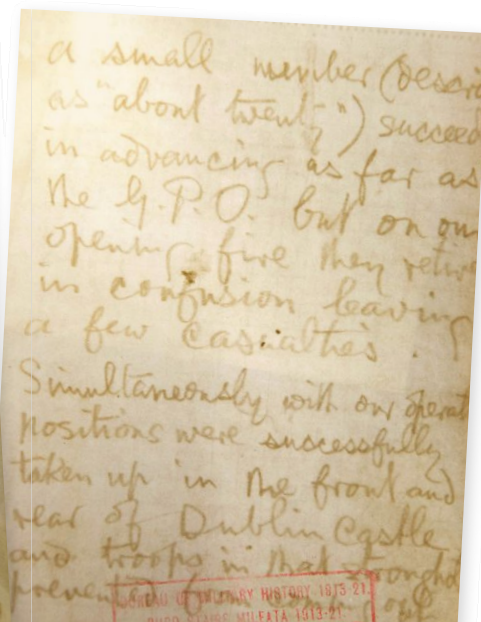 a small number (descri
as "about twenty") succeed
in advancing as far as
the G.P.O. but on our
opening fire they retire
in confusion leaving
a few casualties.
Simultaneously with our operat
positions were successfully
taken up in the front and
rear of Dublin Castle
and troops in that stronghol
prevented from
BUREAU OF MILITARY HISTORY 1913-21
BURO STAIRE MILEATA 1913-21